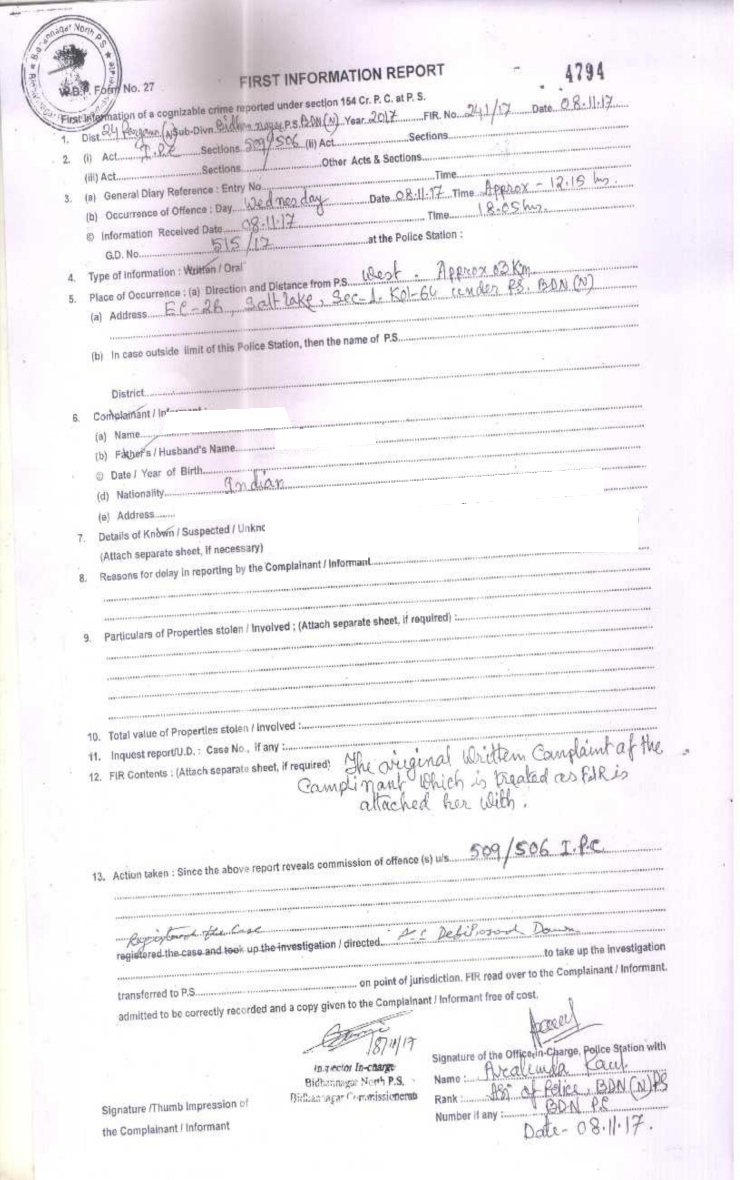 Bidhannagar North P.S.
W.B.P. Form No. 27
FIRST INFORMATION REPORT
4794
First Information of a cognizable crime reported under section 154 Cr. P. C. at P. S.
1. Dist 24 Parganas (N) Sub-Divn Bidhan nagar P.S. BDN (N) Year 2017 FIR. No. 241/17 Date 08.11.17
2. (i) Act I.P.C Sections 509/506 (ii) Act Sections
(iii) Act Sections Other Acts & Sections
3. (a) General Diary Reference : Entry No Time
(b) Occurrence of Offence : Day Wednesday Date 08.11.17 Time Approx - 12.15 hrs.
© Information Received Date 08.11.17 Time 18.05 hrs.
G.D. No. 515/17 at the Police Station :
4. Type of information : Written / Oral
5. Place of Occurrence : (a) Direction and Distance from P.S. West. Approx 03 Km
(a) Address EC-26, Salt lake, Sec-1. Kol-64 under PS. BDN (N)
(b) In case outside limit of this Police Station, then the name of P.S.
District
6. Complainant /
(a) Name
(b) Father's / Husband's Name
© Date / Year of Birth
(d) Nationality Indian
(e) Address
7. Details of Known / Suspected / Unkno
(Attach separate sheet, if necessary)
8. Reasons for delay in reporting by the Complainant / Informant
9. Particulars of Properties stolen / Involved ; (Attach separate sheet, if required) :
10. Total value of Properties stolen / Involved :
11. Inquest report/U.D. : Case No., if any :
12. FIR Contents : (Attach separate sheet, if required) The original Written Complaint of the
Complinant Which is treated as FIR is
attached her with.
13. Action taken : Since the above report reveals commission of offence (s) u/s 509/506 I.P.C
Registered the Case
registered the case and took up the investigation / directed
to take up the investigation
transferred to P.S. on point of jurisdiction. FIR read over to the Complainant / Informant.
admitted to be correctly recorded and a copy given to the Complainant / Informant free of cost.
8/11/17
Inspector In-charge
Bidhannagar North P.S.
Bidhannagar Commissionerate
Signature of the Officer-in-Charge, Police Station with
Name :
Rank : ASI of Police, BDN (N) PS
Number if any : BDN PS
Date- 08.11.17.
Signature /Thumb Impression of
the Complainant / Informant